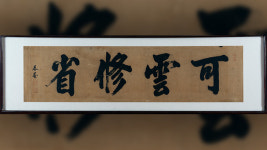 可雲修省